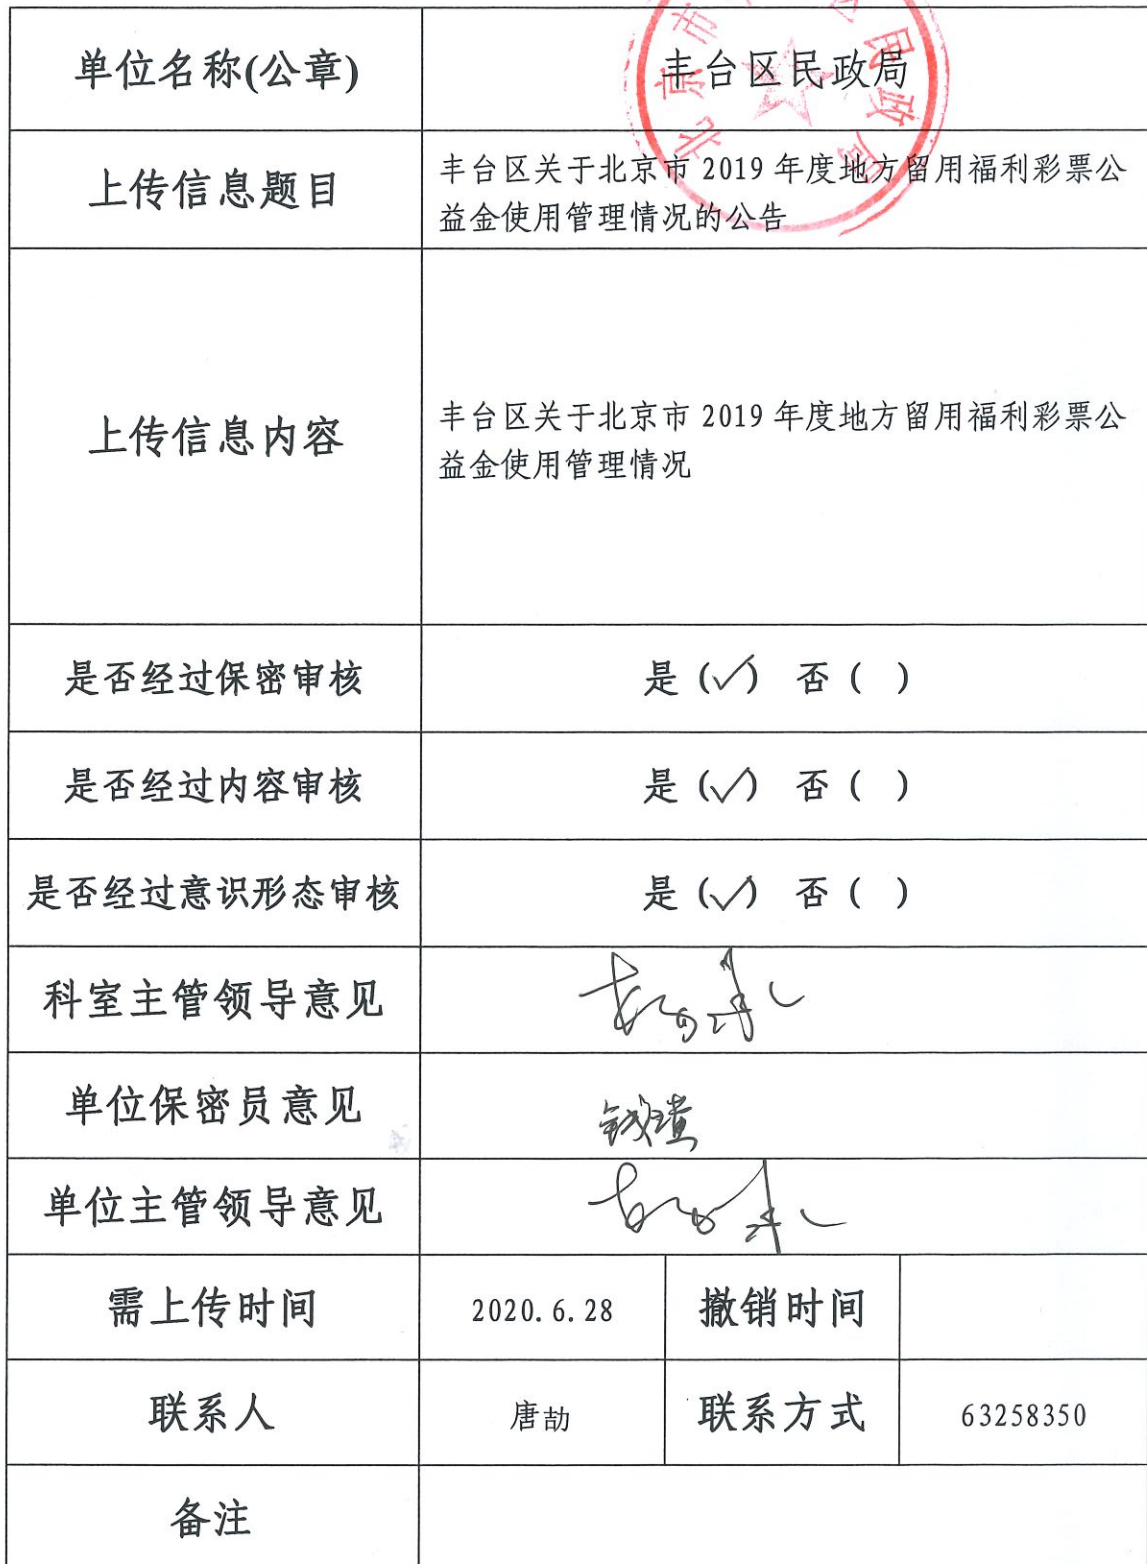 单位名称(公章)
丰台区民政局
北京市 区民政局
上传信息题目
丰台区关于北京市 2019 年度地方留用福利彩票公
益金使用管理情况的公告
上传信息内容
丰台区关于北京市 2019 年度地方留用福利彩票公
益金使用管理情况
是否经过保密审核
是 (✓) 否 ( )
是否经过内容审核
是 (✓) 否 ( )
是否经过意识形态审核
是 (✓) 否 ( )
科室主管领导意见
单位保密员意见
单位主管领导意见
需上传时间
2020.6.28
撤销时间
联系人
唐劼
联系方式
63258350
备注